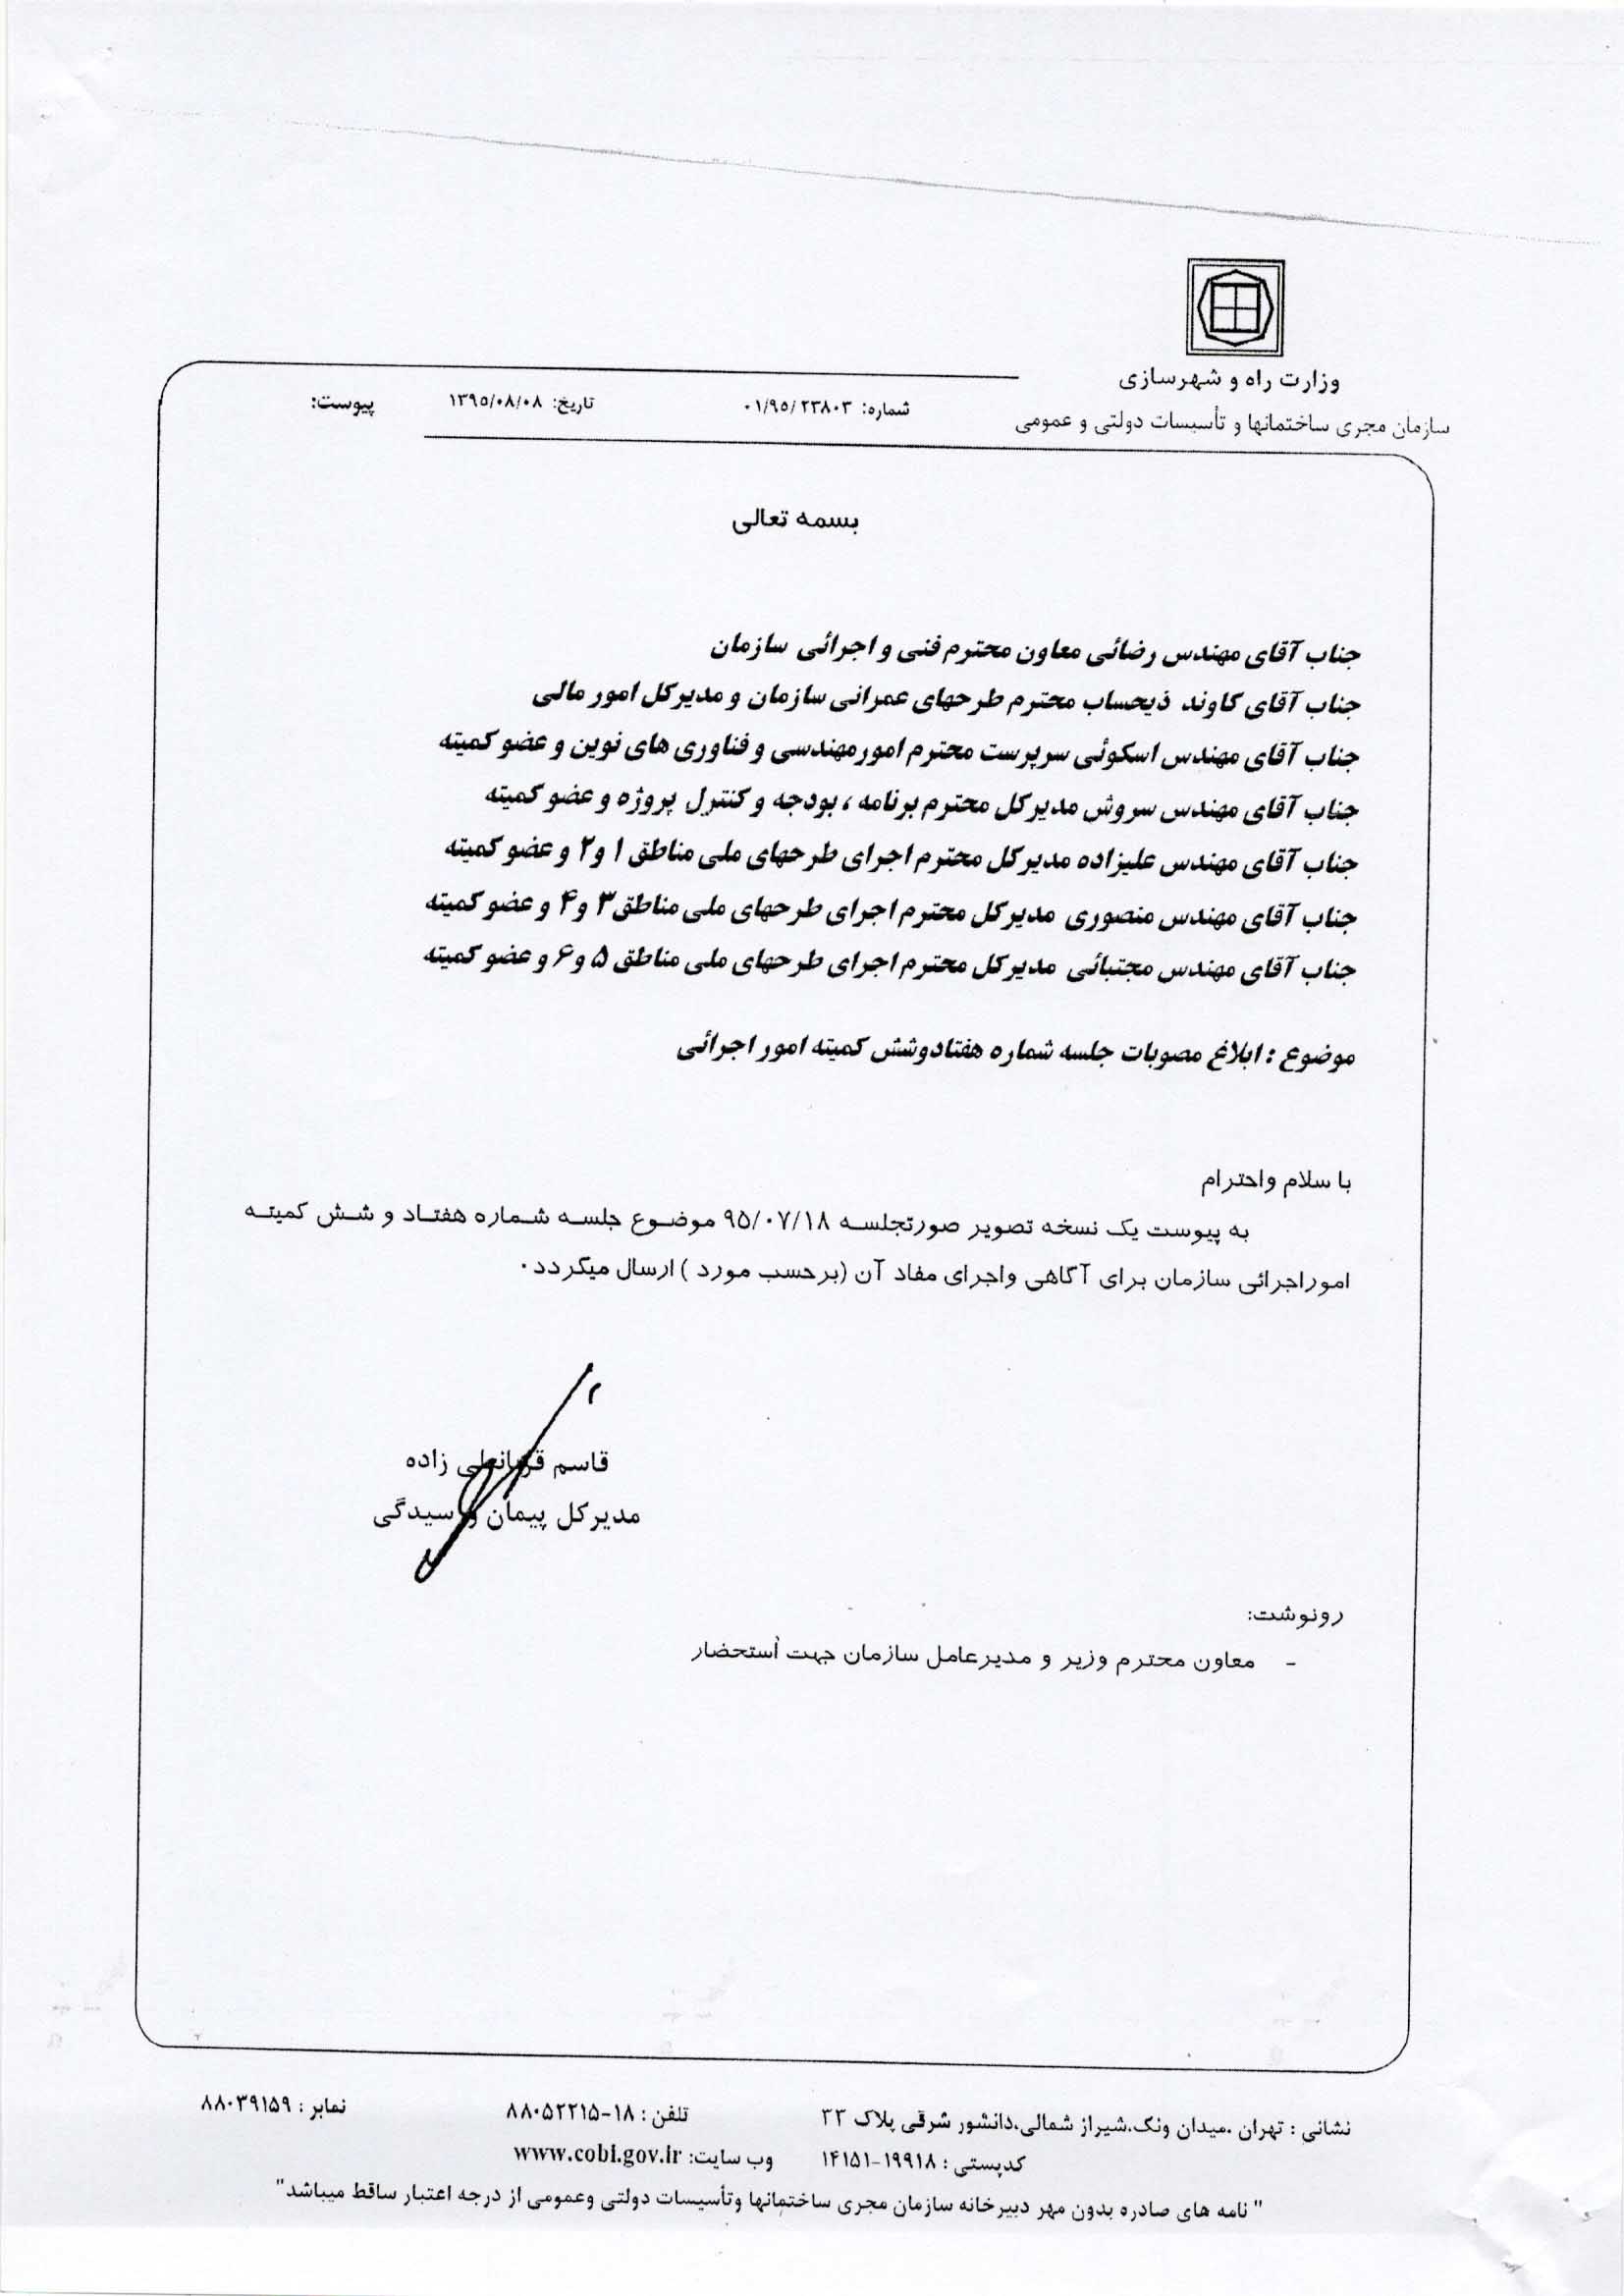 وزارت راه و شهرسازی
سازمان مجری ساختمانها و تأسیسات دولتی و عمومی
شماره: ۰۱/۹۵/۲۳۸۰۳
تاریخ: ۱۳۹۵/۰۸/۰۸
پیوست:
بسمه تعالی
جناب آقای مهندس رضائی معاون محترم فنی و اجرائی سازمان
جناب آقای کاوند ذیحساب محترم طرحهای عمرانی سازمان و مدیرکل امور مالی
جناب آقای مهندس اسکوئی سرپرست محترم امورمهندسی و فناوری های نوین و عضو کمیته
جناب آقای مهندس سروش مدیرکل محترم برنامه ، بودجه و کنترل پروژه و عضو کمیته
جناب آقای مهندس علیزاده مدیرکل محترم اجرای طرحهای ملی مناطق ۱ و۲ و عضو کمیته
جناب آقای مهندس منصوری مدیرکل محترم اجرای طرحهای ملی مناطق۳ و۴ و عضو کمیته
جناب آقای مهندس مجتبائی مدیرکل محترم اجرای طرحهای ملی مناطق ۵ و۶ و عضو کمیته
موضوع : ابلاغ مصوبات جلسه شماره هفتادوشش کمیته امور اجرائی
با سلام واحترام
به پیوست یک نسخه تصویر صورتجلسه ۹۵/۰۷/۱۸ موضوع جلسه شماره هفتاد و شش کمیته
اموراجرائی سازمان برای آگاهی واجرای مفاد آن (برحسب مورد ) ارسال میگردد.
قاسم قربانعلی زاده
مدیرکل پیمان و رسیدگی
رونوشت:
- معاون محترم وزیر و مدیرعامل سازمان جهت استحضار
نشانی : تهران .میدان ونک.شیراز شمالی.دانشور شرقی پلاک ۳۳
تلفن : ۱۸-۸۸۰۵۲۲۱۵
نمابر : ۸۸۰۳۹۱۵۹
کدپستی : ۱۹۹۱۸-۱۴۱۵۱
وب سایت: www.cobi.gov.ir
" نامه های صادره بدون مهر دبیرخانه سازمان مجری ساختمانها وتأسیسات دولتی وعمومی از درجه اعتبار ساقط میباشد"